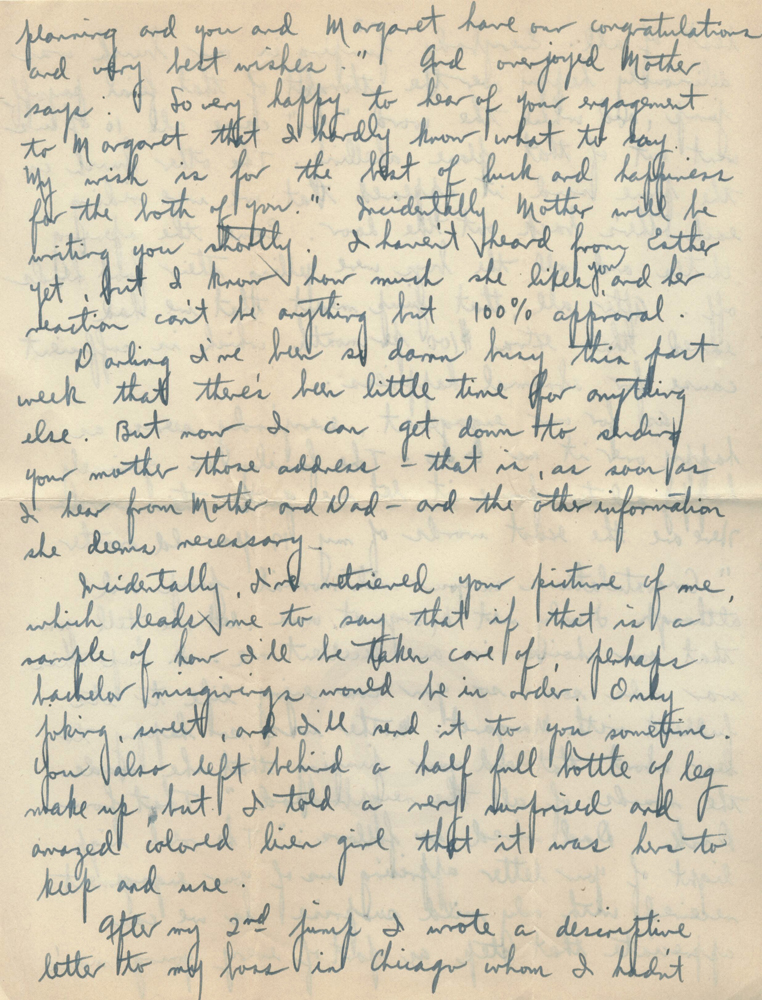 planning and you and Margaret have our congratulations
and very best wishes." And overjoyed Mother
says: "So very happy to hear of your engagement
to Margaret that I hardly know what to say.
My wish is for the best of luck and happiness
for the both of you." Incidentally Mother will be
writing you shortly. I haven't heard from Esther
yet, but I know how much she likes you and her
reaction can't be anything but 100% approval.
Darling I've been so damn busy this past
week that there's been little time for anything
else. But now I can get down to sending
your mother those address - that is, as soon as
I hear from Mother and Dad - and the other information
she deems necessary.
Incidentally, I've retrieved your picture of me,
which leads me to say that if that is a
sample of how I'll be taken care of, perhaps
bachelor misgivings would be in order. Only
joking, sweet, and I'll send it to you sometime.
You also left behind a half full bottle of leg
make up, but I told a very surprised and
amazed colored linen girl that it was hers to
keep and use.
After my 2nd jump I wrote a descriptive
letter to my boss in Chicago whom I hadn't